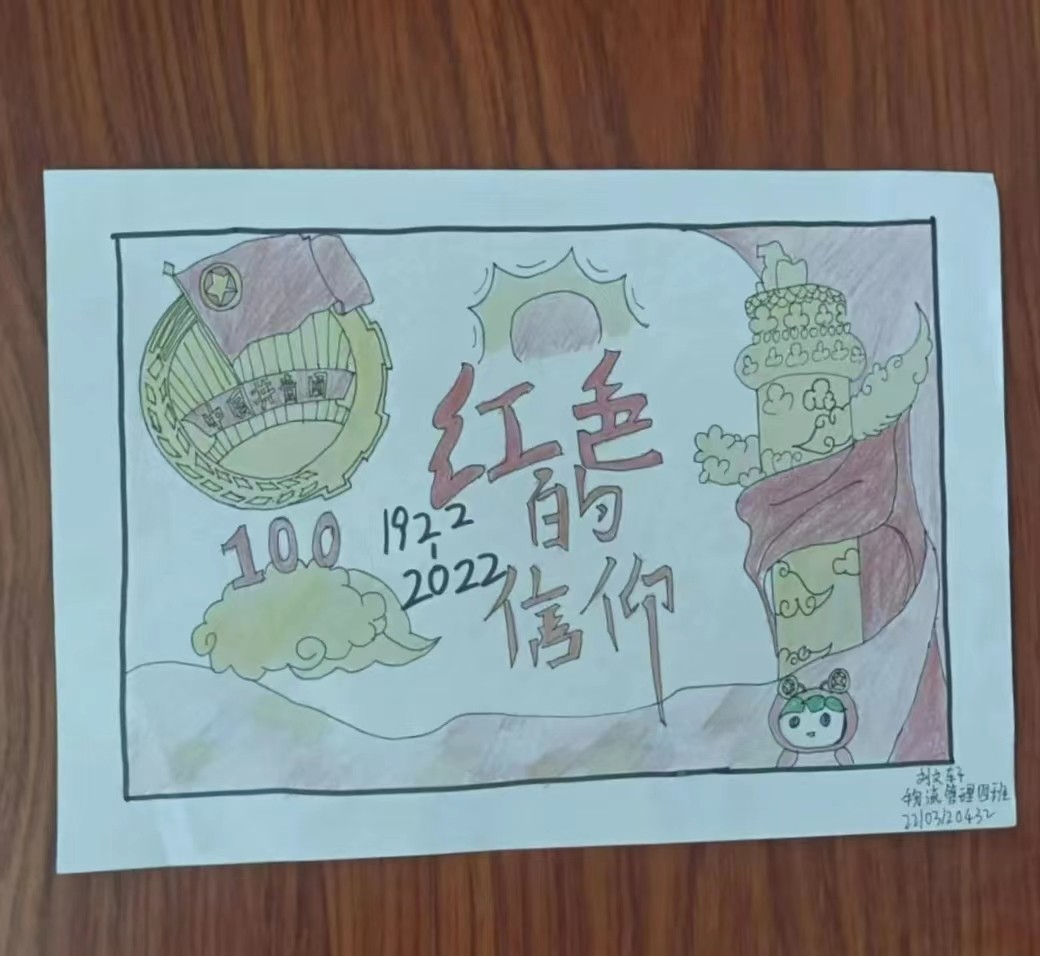 中国共青团
红色
的
信仰
100
1922
-
2022
刘文
物流管理四班
22103120432